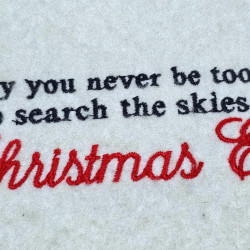 y you never be too
o search the skies
Christmas E